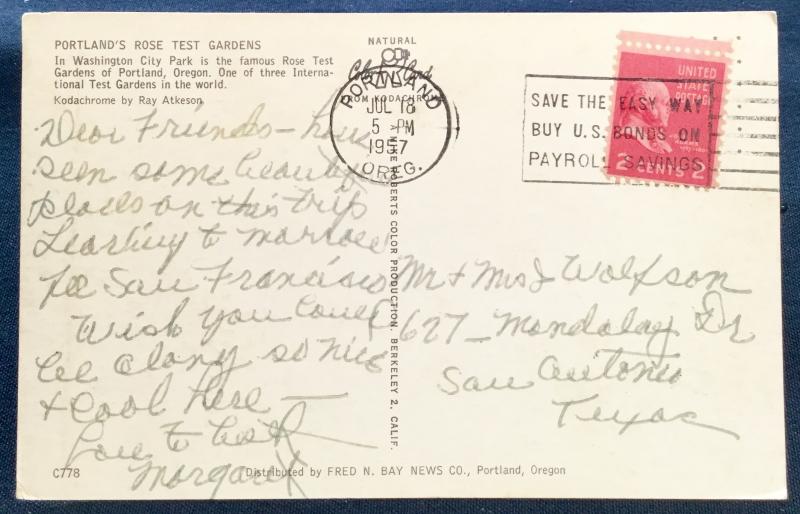 PORTLAND'S ROSE TEST GARDENS
In Washington City Park is the famous Rose Test
Gardens of Portland, Oregon. One of three Interna-
tional Test Gardens in the world.
Kodachrome by Ray Atkeson
Dear Friends – have
seen some beauty
places on this trip
Leaving to morrow
for San Francisco
Wish you could
be along so nice
& cool here —
Love to both
Margaret
C778
NATURAL
Color Card
FROM KODACHROME
A MIKE ROBERTS COLOR PRODUCTION. BERKELEY 2, CALIF.
PORTLAND
JUL 18
5 PM
1957
OREG.
SAVE THE EASY WAY
BUY U.S. BONDS ON
PAYROLL SAVINGS
UNITED
STATES
POSTAGE
ADAMS
2 CENTS 2
Mr & Mrs J Wolfson
627 – Mandalay Dr
San Antonio
Texas
Distributed by FRED N. BAY NEWS CO., Portland, Oregon